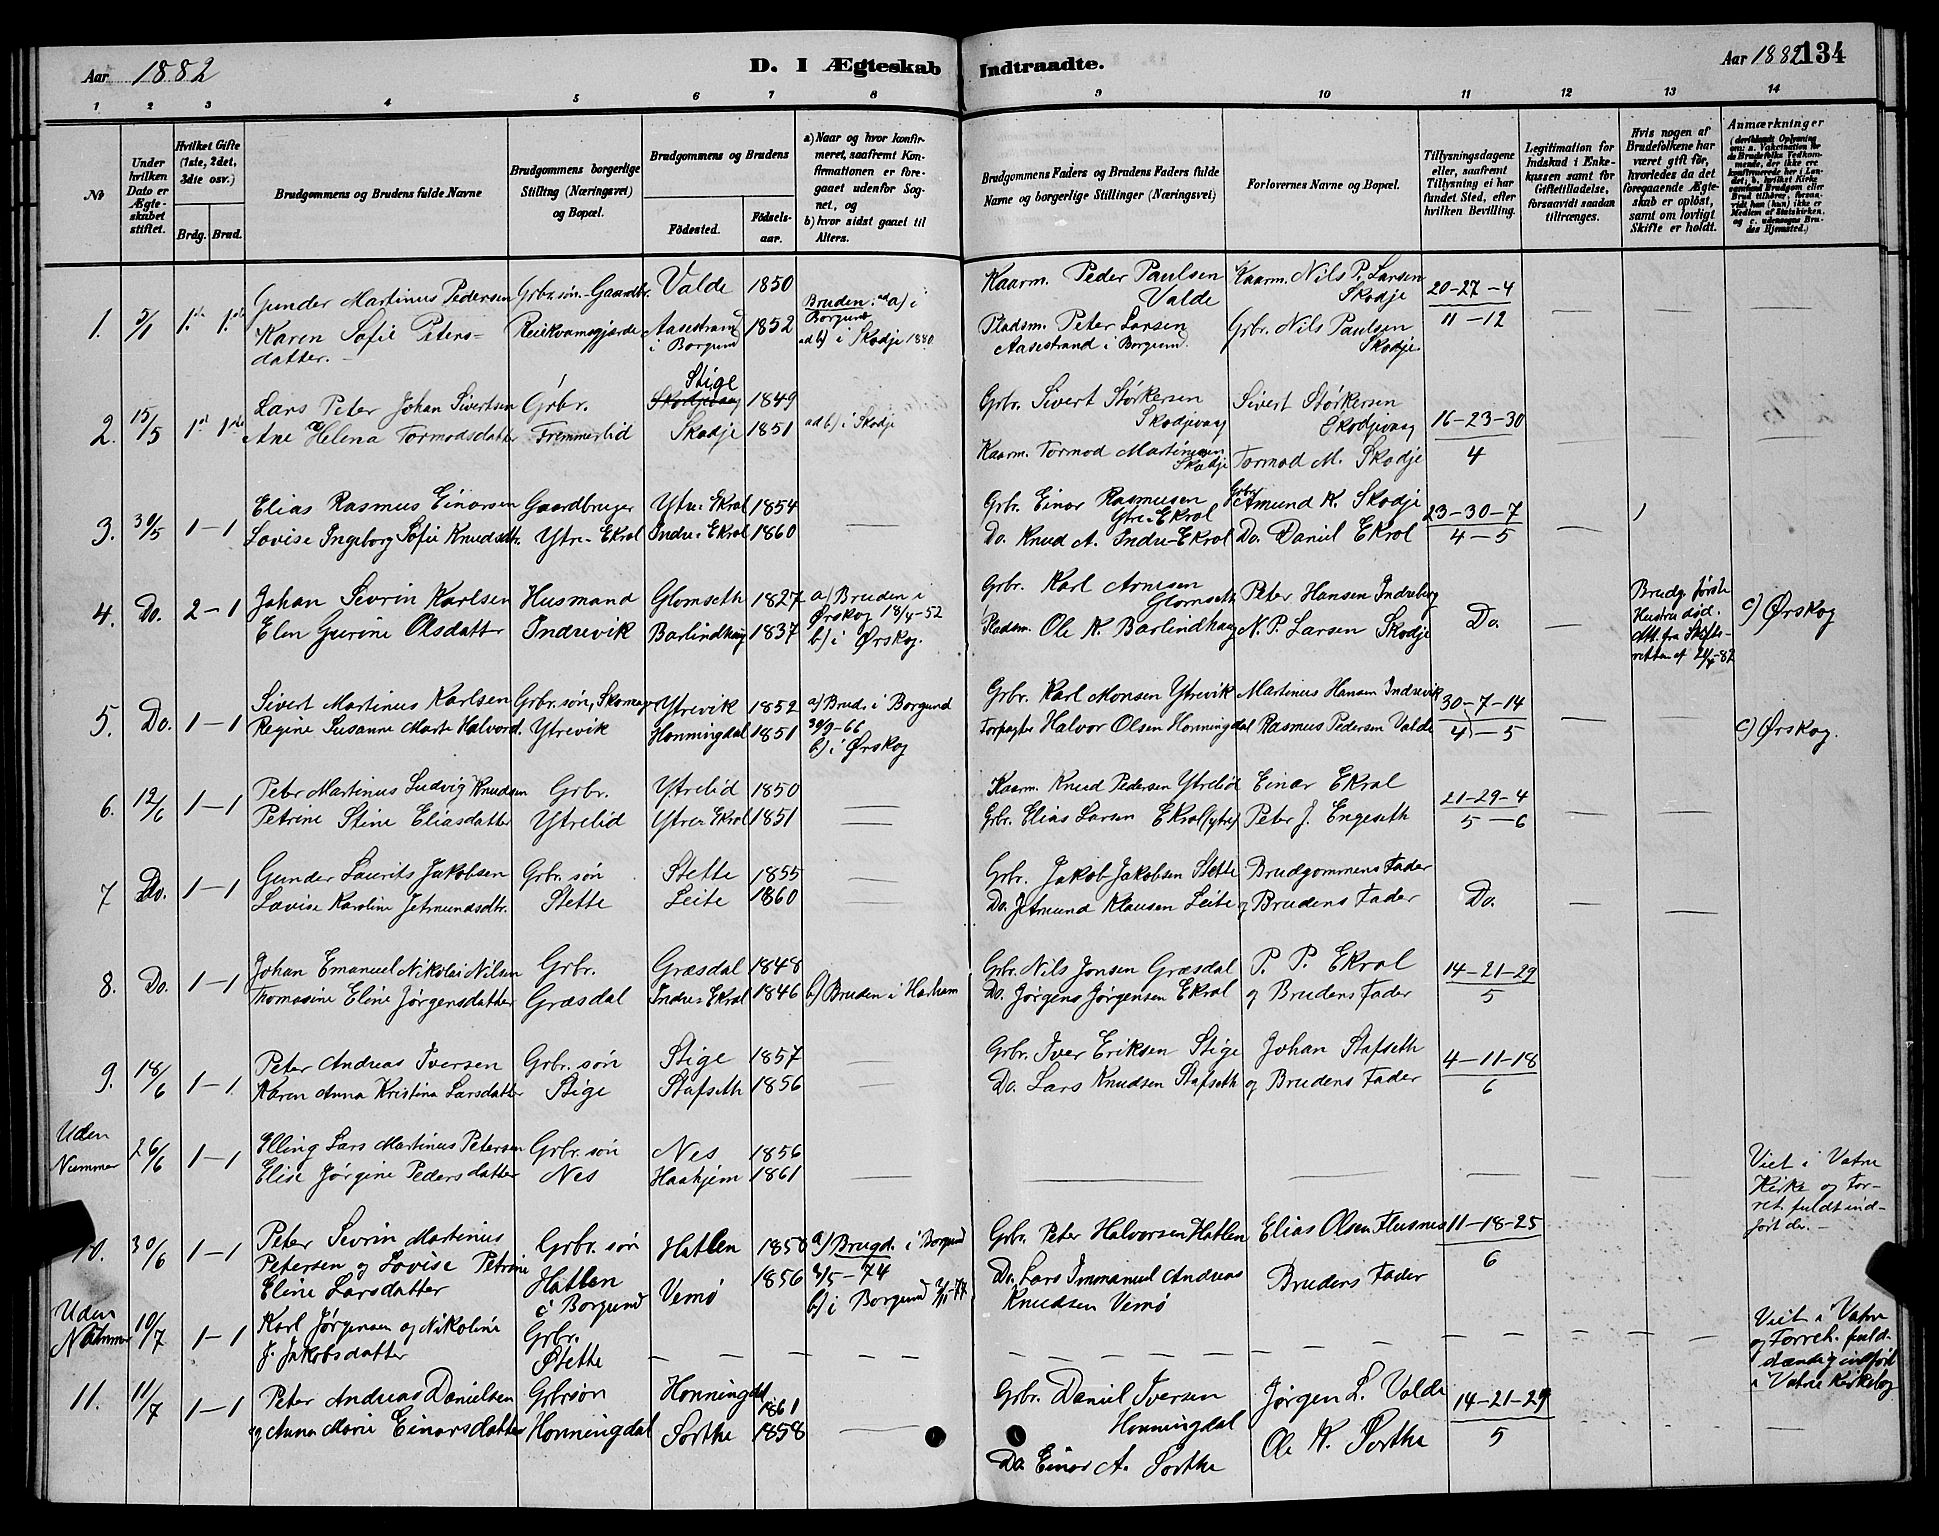 Aar 1882
D. I Ægteskab Indtraadte.
Aar 1882 134
1 2 3 4 5 6 7 8 9 10 11 12 13 14
No
Under hvilken Dato er Ægteskabet stiftet.
Hvilket Gifte (1ste, 2det, 3die osv.)
Brdg. Brud.
Brudgommens og Brudens fulde Navne
Brudgommens borgerlige Stilling (Næringsvei) og Bopæl.
Brudgommens og Brudens
Fødested.
Fødselsaar.
a) Naar og hvor konfirmeret, saafremt Konfirmationen er foregaaet udenfor Sognet, og
b) hvor sidst gaaet til Alters.
Brudgommens Faders og Brudens Faders fulde Navne og borgerlige Stillinger (Næringsvei)
Forlovernes Navne og Bopæl.
Tillysningsdagene eller, saafremt Tillysning ei har fundet Sted, efter hvilken Bevilling.
Legitimation for Indskud i Enkekassen samt for Giftetilladelse, forsaavidt saadan tiltrænges.
Hvis nogen af Brudefolkene har været gift før, hvorledes da det foregaaende Ægteskab er opløst, samt om lovligt Skifte er holdt.
Anmærkninger
(deriblandt Oplysning om: a. Vakcination for de Brudefolks Vedkommende, der ikke ere konfirmerede her i Landet, b. hvilket Kirkesamfund Brudgom eller Brud tilhører, forsaavidt han (hun) ikke er Medlem af Statskirken, og c. udensogns Brudes Hjemsted.)
1. 2/1 1ste 1ste
Gunder Martinus Pedersen
Karen Sofie Petersdatter.
Grbr. søn - Gaardbr.
Reiekvamsgjærde
Valde 1850
Aasestrand i Borgund 1852
Bruden: ad a) i Borgund
ad b) i Skodje
Kaarm. Peder Paulsen Valde
Pladsm. Peter Larsen Aasestrand i Borgund.
Kaarm. Nils P. Larsen Skodje
Grbr. Nils Paulsen Skodje
20-27-4
11-12
2. 15/5 1st 1ste
Lars Peter Johan Sivertsen
Ane Helena Tormodsdatter
Grbr.
Fremmerlid
Stige
Skodjevaag 1849
Skodje 1851
ad b) i Skodje
Grbr. Sivert Størkersen Skodjevag
Kaarm. Tormod Martinussen Skodje
Sivert Størkersen Skodjevag
Tormod M. Skodje
16-23-30
4
3. 30/5 1-1
Elias Rasmus Einarsen
Lovise Ingeborg Sofie Knudsdtr.
Gaardbruger
Ytre-Ekrol
Ytre Ekrol 1854
Indre-Ekrol 1860
Grbr. Einar Rasmusen Ytre-Ekrol
Do. Knud A. Indre-Ekrol
Grbr. Amund K. Skodje
Do. Daniel Ekrol
23-30-7
4-5
4. Do. 2-1
Johan Sevrin Karlsen
Elen Gurine Olsdatter
Husmand
Indrevik
Glomseth 1827
Barlindhaug 1837
a) Bruden i Ørskog 18/4-52
b) i Ørskog.
Grbr. Karl Arnesen Glomseth
Pladsm. Ole K. Barlindhaug
Peter Hansen Indreberg
N. P. Larsen Skodje
Do.
Brudg. første Hustru død. Att. fra Skifteretten af 21/4-82
c) Ørskog
5. Do. 1-1
Sivert Martinus Karlsen
Regine Susanne Marte Halvord.
Grbr. søn, Skomager
Ytrevik
Ytrevik 1852
Honningdal 1851
a) Brud. i Borgund
30/9-66
b) i Ørskog
Grbr. Karl Monsen Ytrevik
Forpagter Halvor Olsen Honningdal
Martinus Hansen Indrevik
Rasmus Pedersen Valde
30-7-14
4-5
c) Ørskog.
6. 12/6 1-1
Peter Martinus Ludvig Knudsen
Petrine Stine Eliasdatter
Grbr.
Ytrelid
Ytrelid 1850
Ytre Ekrol 1851
Kaarm. Knud Pedersen Ytrelid
Grbr. Elias Larsen Ekrol (ytre)
Einar Ekrol
Peter J. Engeseth
21-29-4
5-6
7 Do. 1-1
Gunder Laurits Jakobsen
Lavise Karoline Jetmundsdtr.
Grbr. søn
Stette
Stette 1855
Leite 1860
Grbr. Jakob Jakobsen Stette
Do. Jetmund Klausen Leite
Brudgommens Fader
og Brudens Fader
Do.
8. Do. 1-1
Johan Emanuel Nikolai Nilsen
Thomasine Eline Jørgensdatter
Grbr.
Græsdal
Græsdal 1848
Indre-Ekrol 1846
b) Bruden i Harham
Grbr. Nils Jonsen Græsdal
Do. Jørgens Jørgensen Ekrol
P. P. Ekrol
og Brudens Fader
14-21-29
5
9. 18/6 1-1
Peter Andreas Iversen
Karen Anna Kristina Larsdatter
Grbr. søn
Stige
Stige 1857
Stafseth 1856
Grbr. Iver Eriksen Stige
Do. Lars Knudsen Stafseth
Johan Stafseth
og Brudens Fader
4-11-18
6
Uden Nummer 26/6 1-1
Elling Lars Martinus Petersen
Elise Jørgine Pedersdatter
Grbr. søn
Nes
Nes 1856
Haahjem 1861
Viet i Vatne Kirke og Forret. fuldt indført der.
10. 30/6 1-1
Peter Sevrin Martinus
Petersen og Lovise Petrine
Eline Larsdatter
Grbr. søn
Hatlen
i Borgund
Hatlen 1858
Vemø 1856
a) Brugd. i Borgund
3/5-74
b) i Borgund
Grbr. Peter Halvorsen Hatlen
Do. Lars Immanuel Andreas
Knudsen Vemø
Elias Olsen Flusnes
Brudens Fader
11-18-25
6
Uden Nummer 10/7 1-1
Karl Jørgensen og Nikoline
J. Jakobsdatter
Grbr.
Stette
Viet i Vatne
og Forret. fuldstændig indført
i Vatne Kirkebog
11. 11/7 1-1
Peter Andreas Danielsen
og Anna Marie Einarsdatter
Grbr søn
Honningdal
Honningdal 1861
Sortha 1858
Grbr. Daniel Iversen Honningdal
Do Einar A. Sortha
Jørgen L. Valde
Ole K. Sortha
14-21-29
5